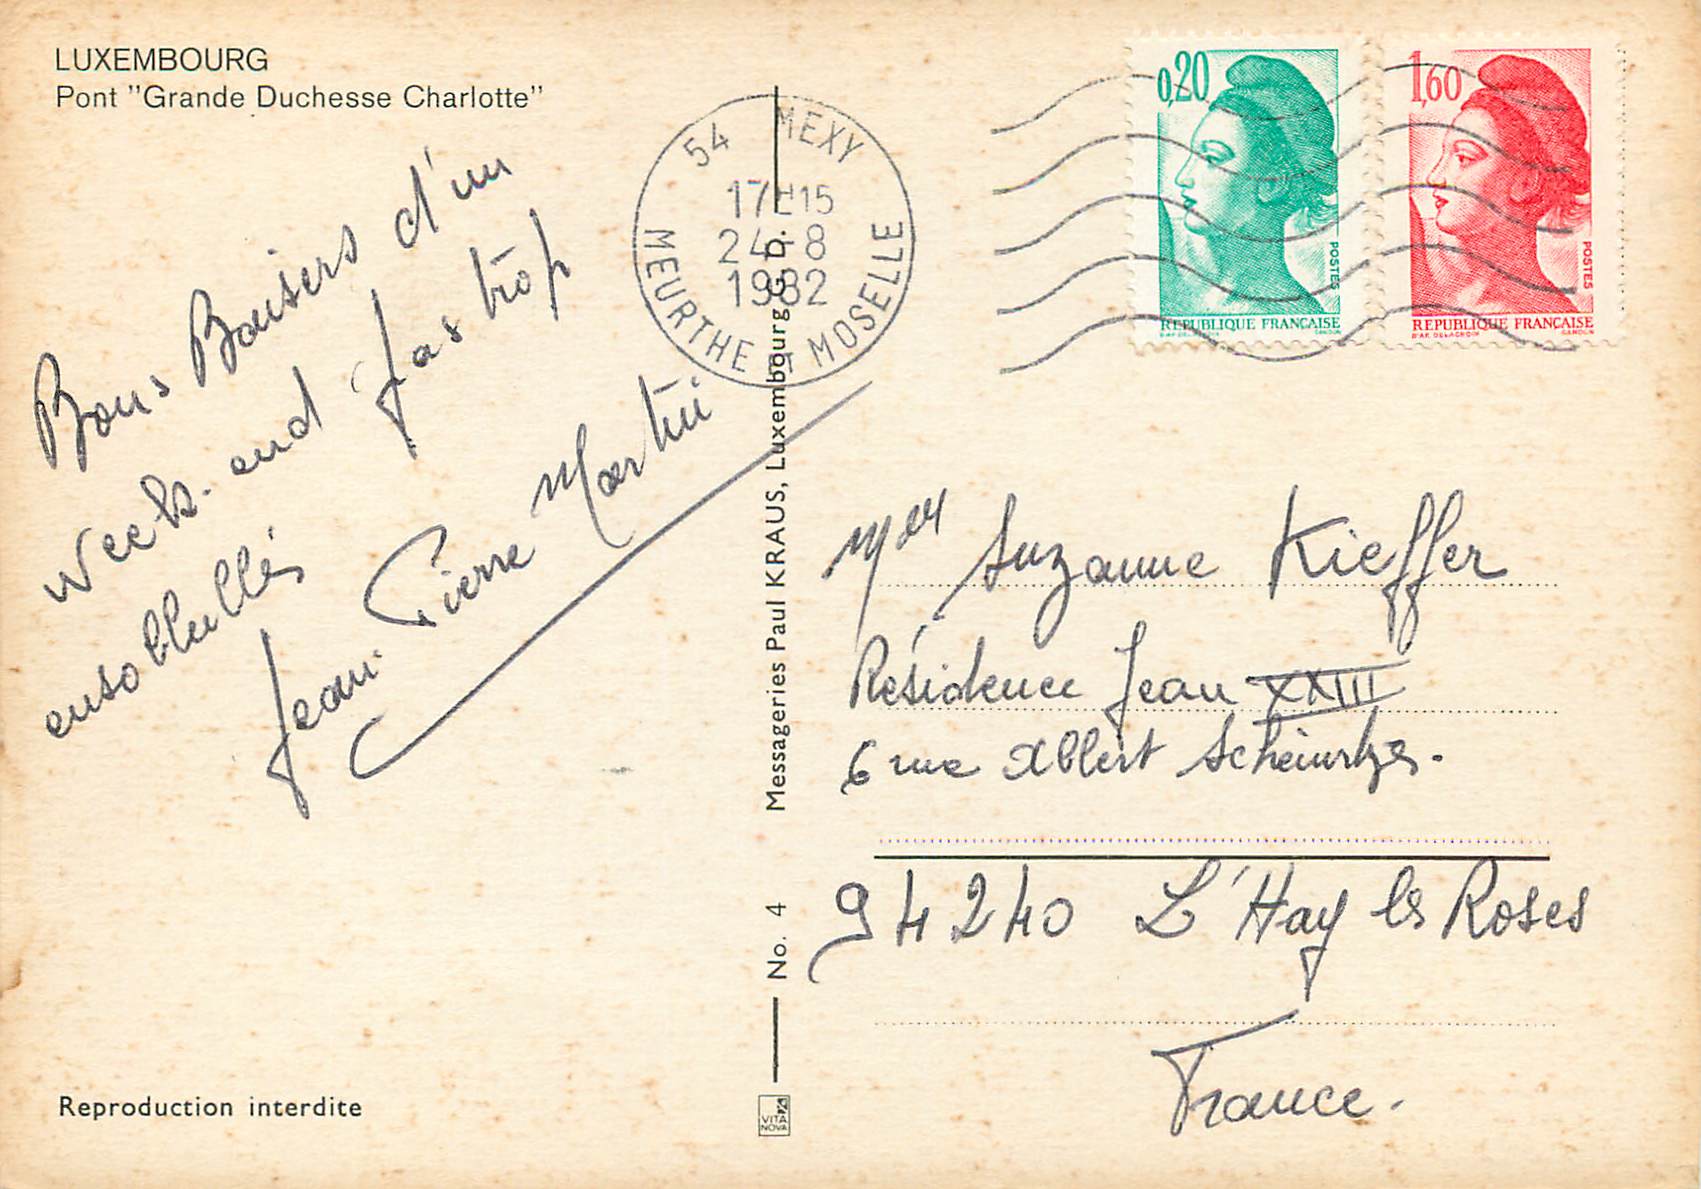 LUXEMBOURG
Pont "Grande Duchesse Charlotte"
Bons Baisers d'un
Week-end pas trop
ensolleillés
Jean-Pierre Martin
54 MEXY
17H15
24-8
1982
MEURTHE ET MOSELLE
0,20
POSTES
REPUBLIQUE FRANÇAISE
D'AP. DELACROIX GANDON
1,60
POSTES
REPUBLIQUE FRANÇAISE
D'AP. DELACROIX GANDON
No. 4 Messageries Paul KRAUS, Luxembourg G.D.
Suzanne Kieffer
Résidence Jean XXIII
6 rue Albert
94240 L'Hay les Roses
France.
Reproduction interdite
VITA
NOVA